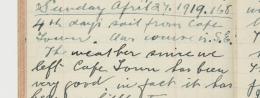 Sunday April 27. 1919. 168
4th day's sail from Cape
Town. Our course is S.E.
The weather since we
left Cape Town has been
very good in fact it has